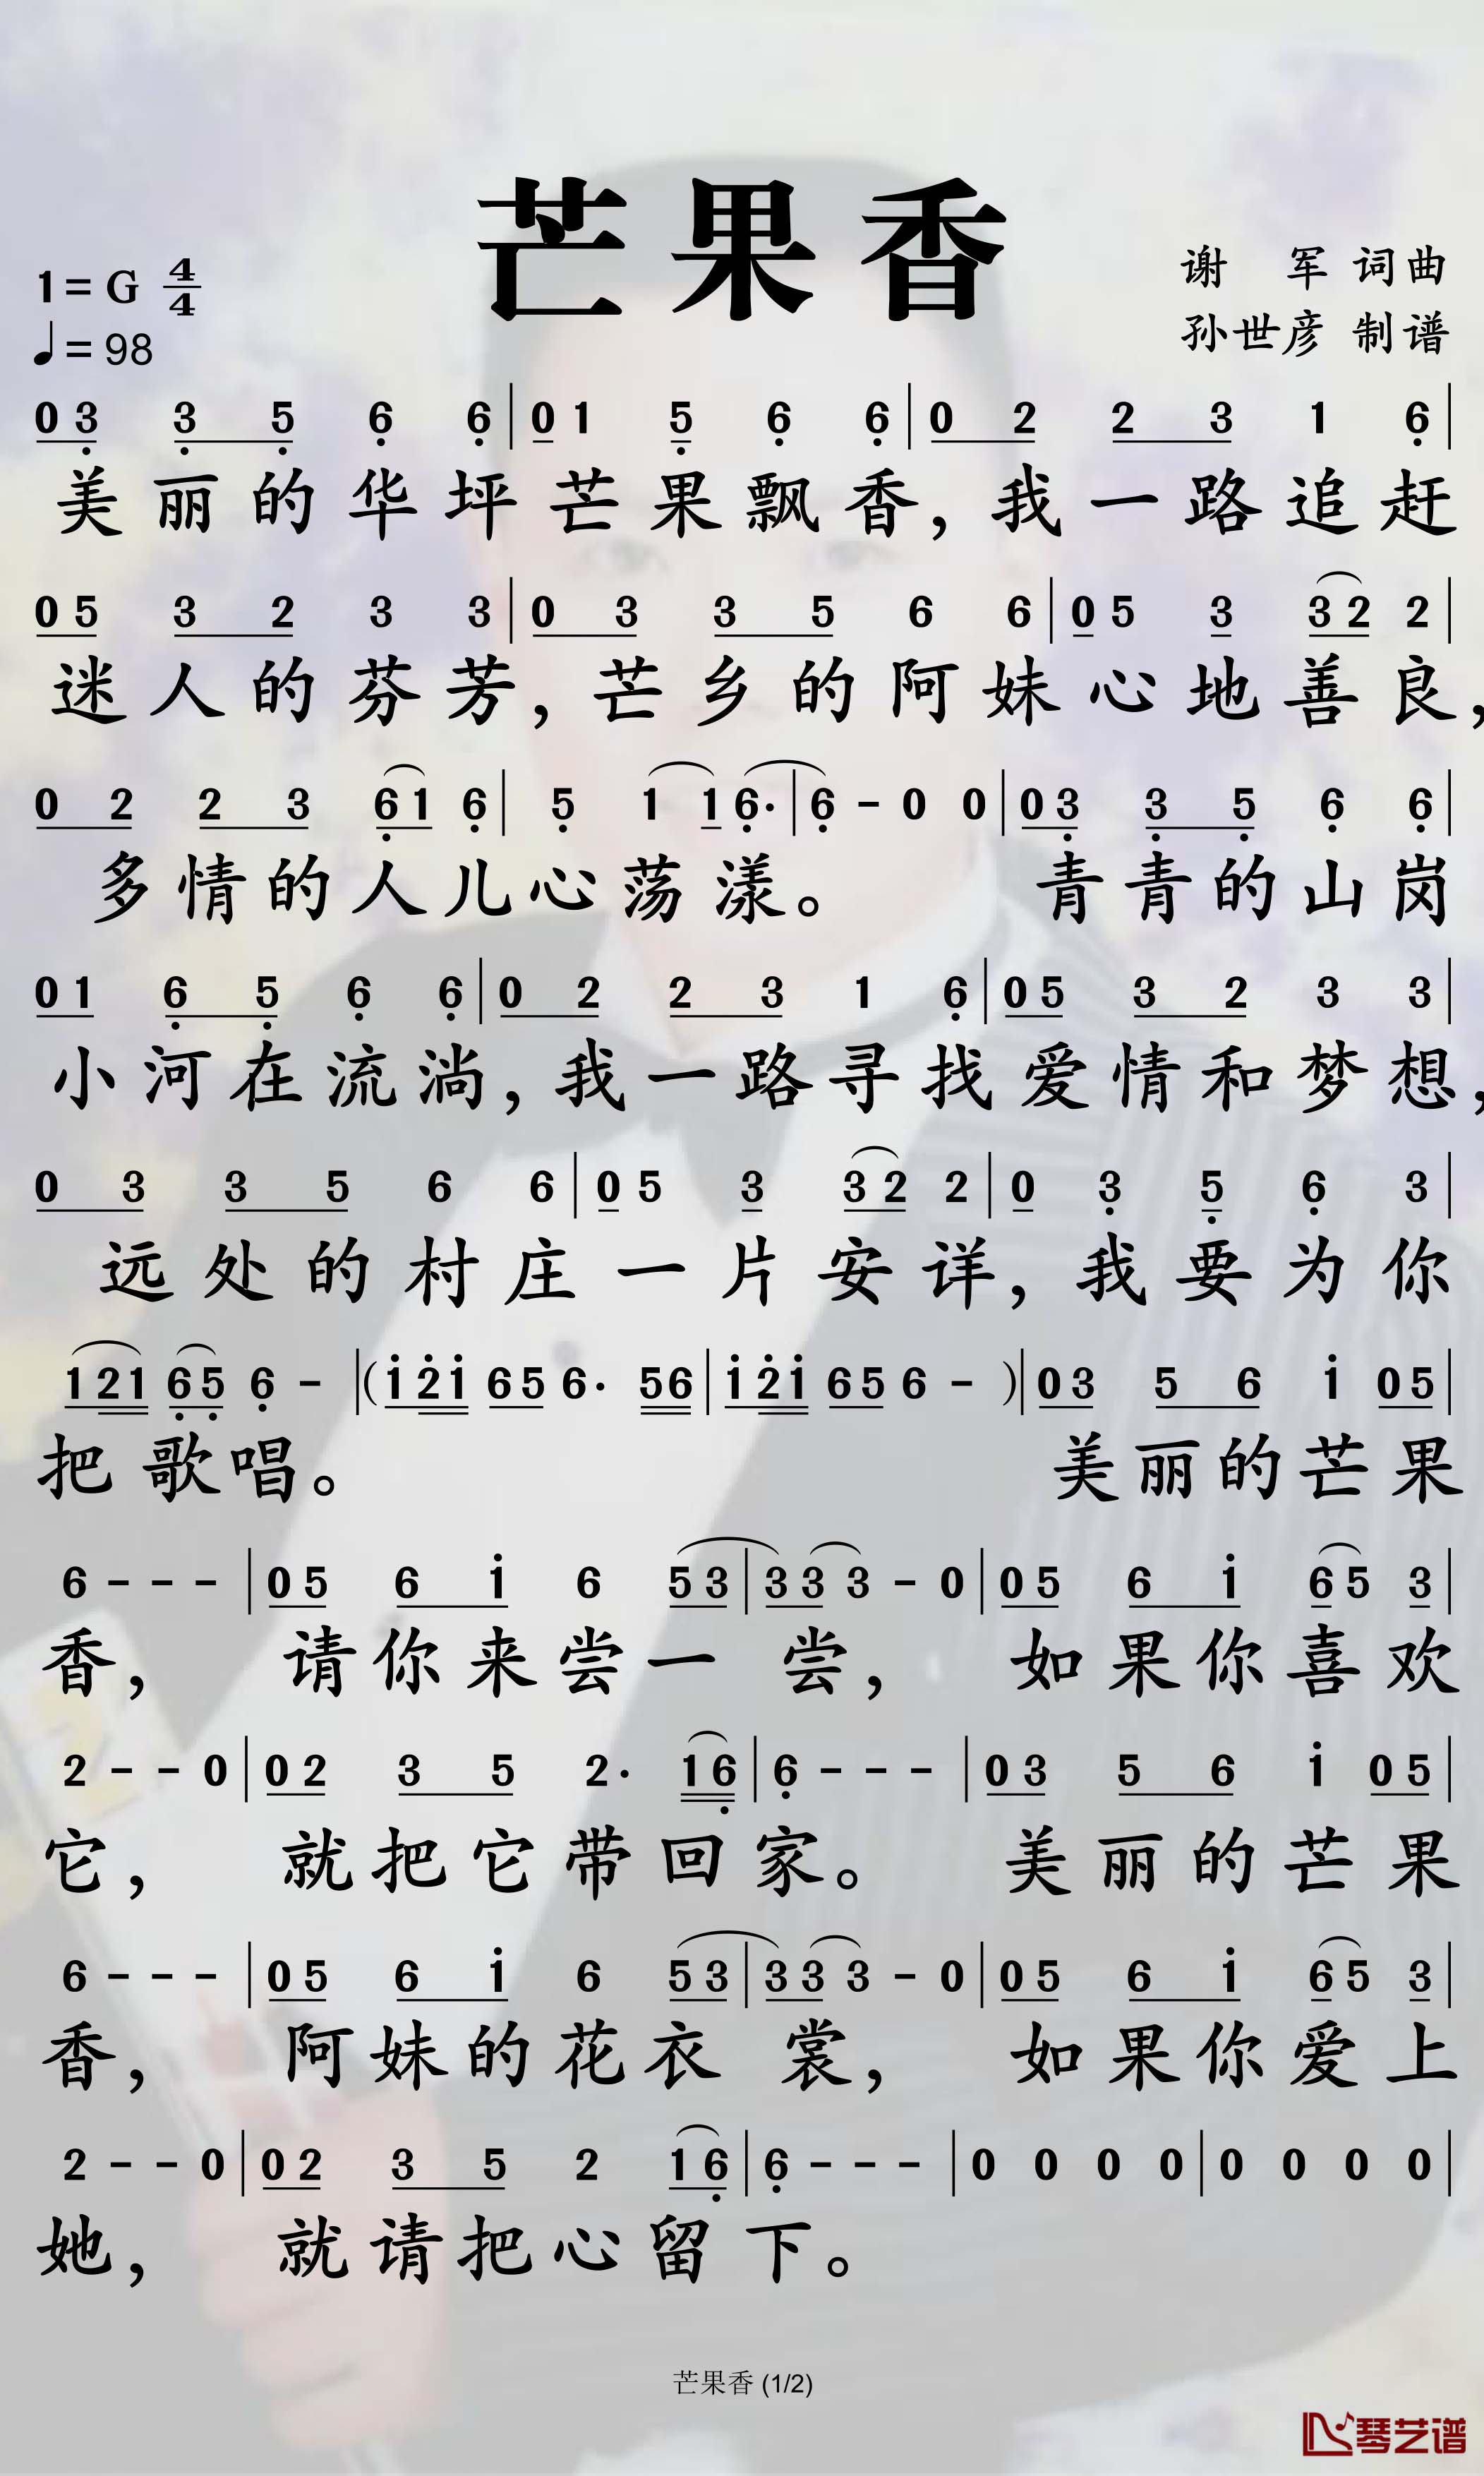 芒果香
1=G 4/4
谢 军 词曲
♩=98
孙世彦 制谱
0 3 3 5 6 6 | 0 1 5 6 6 | 0 2 2 3 1 6 |
美丽的华坪芒果飘香,我一路追赶
0 5 3 2 3 3 | 0 3 3 5 6 6 | 0 5 3 3 2 2 |
迷人的芬芳,芒乡的阿妹心地善良,
0 2 2 3 6 1 6 | 5 1 1 6· | 6 - 0 0 | 0 3 3 5 6 6 |
多情的人儿心荡漾。 青青的山岗
0 1 6 5 6 6 | 0 2 2 3 1 6 | 0 5 3 2 3 3 |
小河在流淌,我一路寻找爱情和梦想,
0 3 3 5 6 6 | 0 5 3 3 2 2 | 0 3 5 6 3 |
远处的村庄一片安详,我要为你
1 2 1 6 5 6 - | (1 2 1 6 5 6· 5 6 | 1 2 1 6 5 6 - ) | 0 3 5 6 1 0 5 |
把歌唱。 美丽的芒果
6 - - - | 0 5 6 1 6 5 3 | 3 3 3 - 0 | 0 5 6 1 6 5 3 |
香, 请你来尝一尝, 如果你喜欢
2 - - 0 | 0 2 3 5 2· 1 6 | 6 - - - | 0 3 5 6 1 0 5 |
它, 就把它带回家。 美丽的芒果
6 - - - | 0 5 6 1 6 5 3 | 3 3 3 - 0 | 0 5 6 1 6 5 3 |
香, 阿妹的花衣裳, 如果你爱上
2 - - 0 | 0 2 3 5 2 1 6 | 6 - - - | 0 0 0 0 | 0 0 0 0 |
她, 就请把心留下。
芒果香 (1/2)
琴艺谱